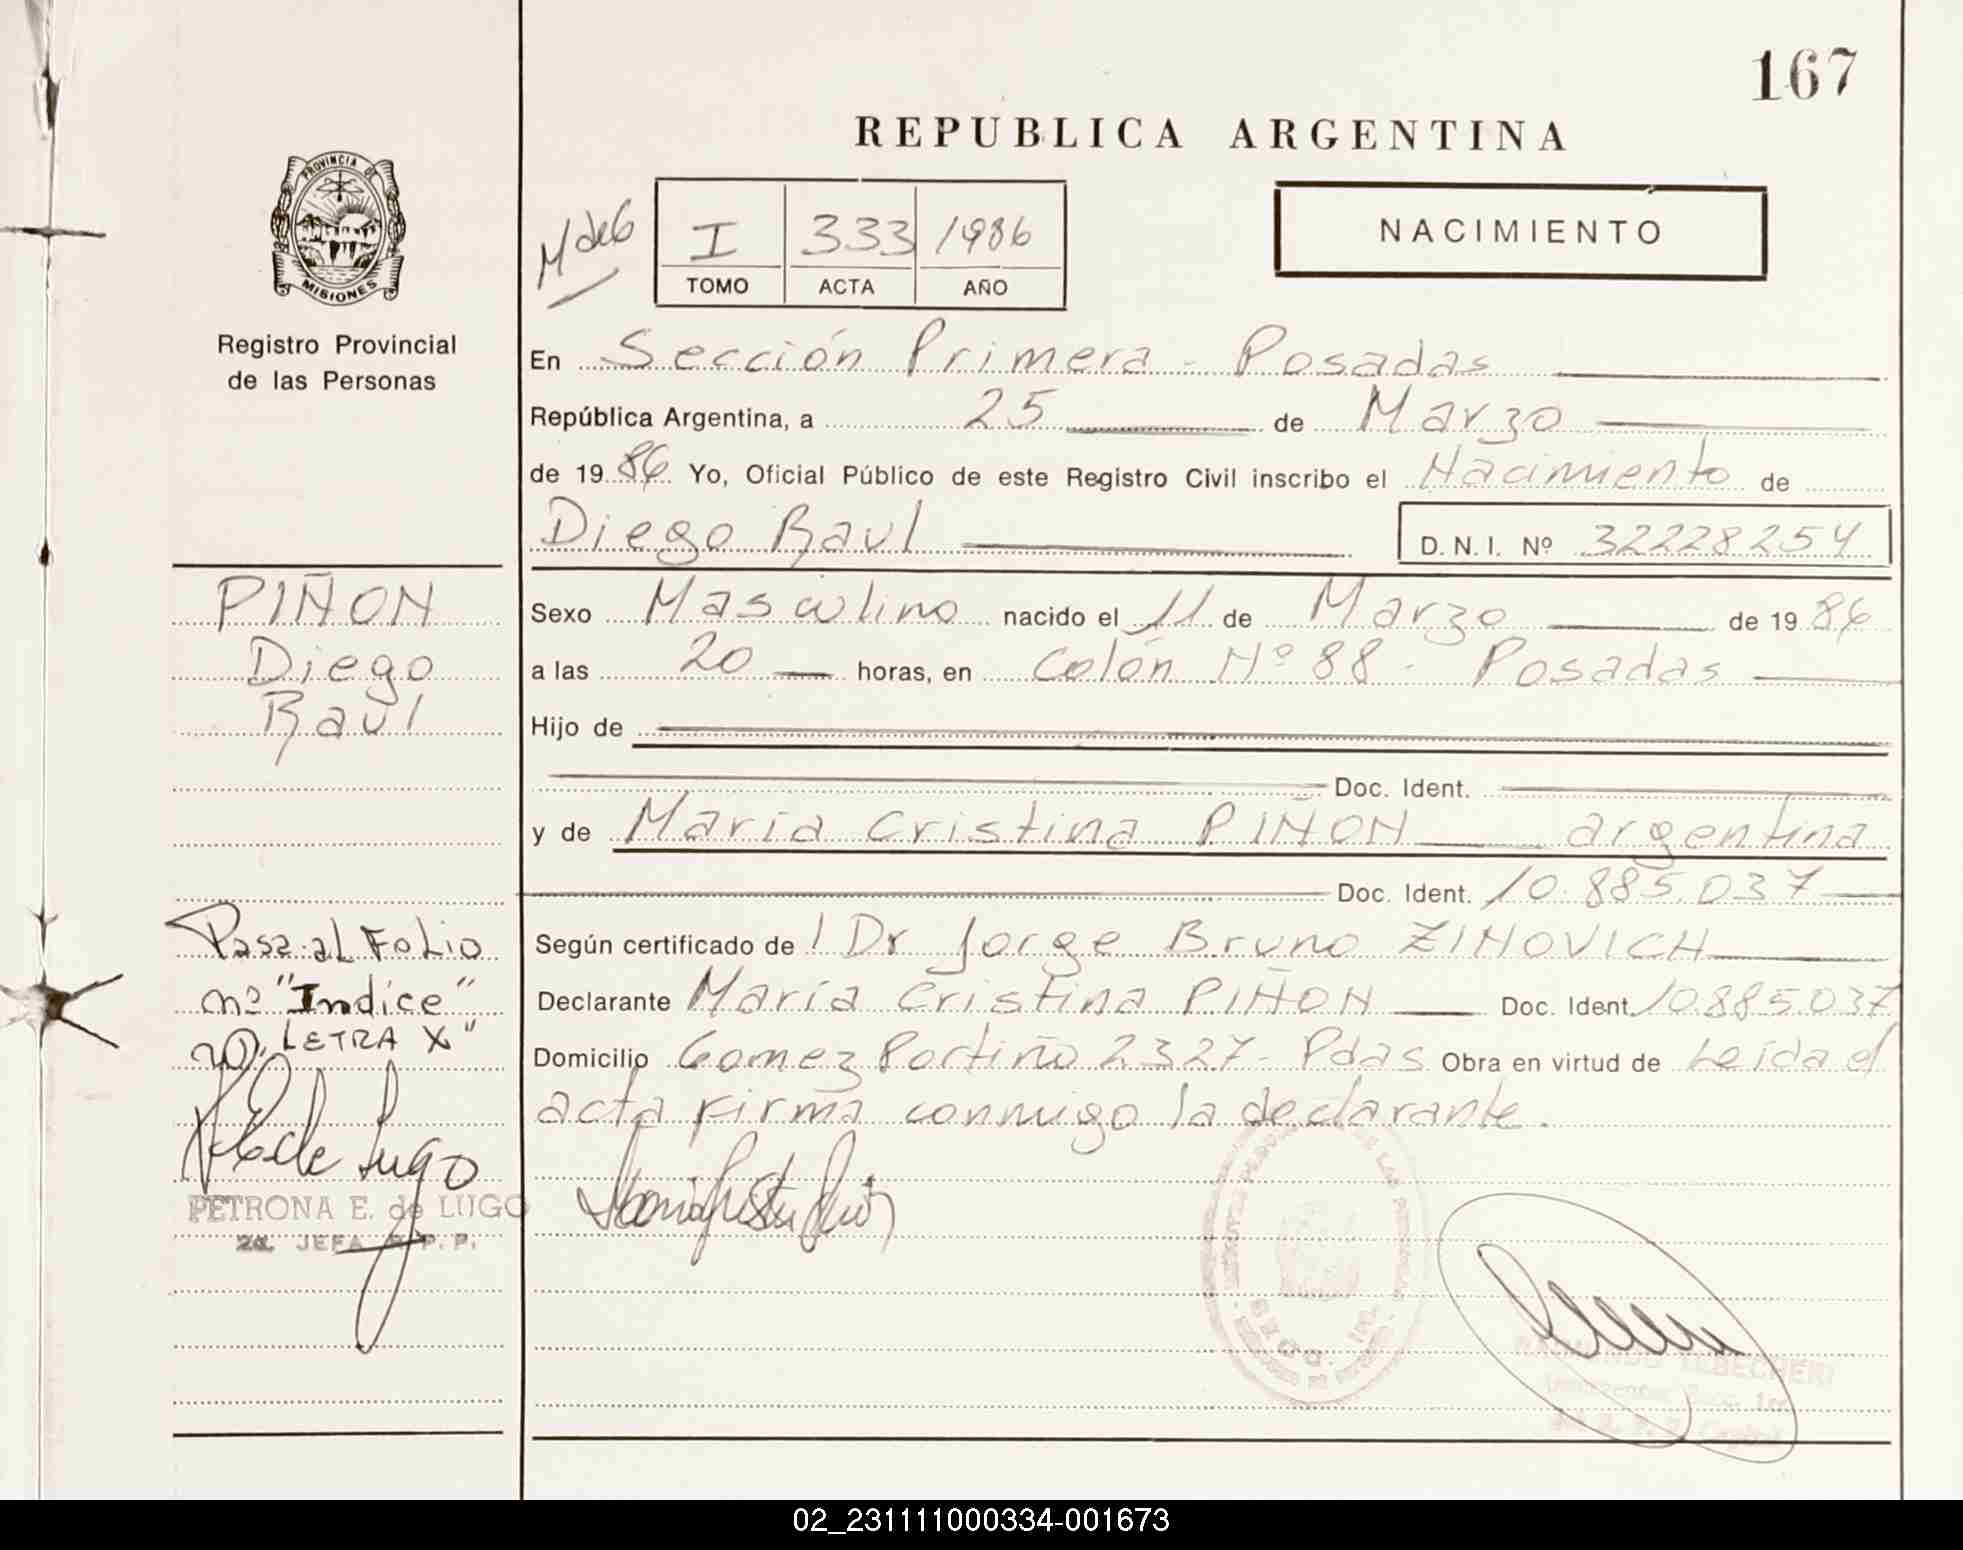 167
REPUBLICA ARGENTINA
PROVINCIA DE
MISIONES
Registro Provincial
de las Personas
M de G
I 333 1986
TOMO ACTA AÑO
NACIMIENTO
En Sección Primera - Posadas
República Argentina, a 25 de Marzo
de 1986 Yo, Oficial Público de este Registro Civil inscribo el Nacimiento de
Diego Raul D.N.I. Nº 32228254
PIÑON
Diego
Raul
Sexo Masculino nacido el 11 de Marzo de 1986
a las 20 horas, en Colón Nº 88 - Posadas
Hijo de
Doc. Ident.
y de María Cristina PIÑON argentina
Doc. Ident. 10.885.037
Según certificado de l Dr Jorge Bruno ZINOVICH
Declarante María Cristina PIÑON Doc. Ident. 10.885.037
Domicilio Gomez Portiño 2327 - Pdas Obra en virtud de Leída el
acta firma conmigo la declarante.
Pasa al Folio
nº "Indice"
LETRA X"
PETRONA E. de LUGO
2a. JEFA R.P.P.
02_231111000334-001673